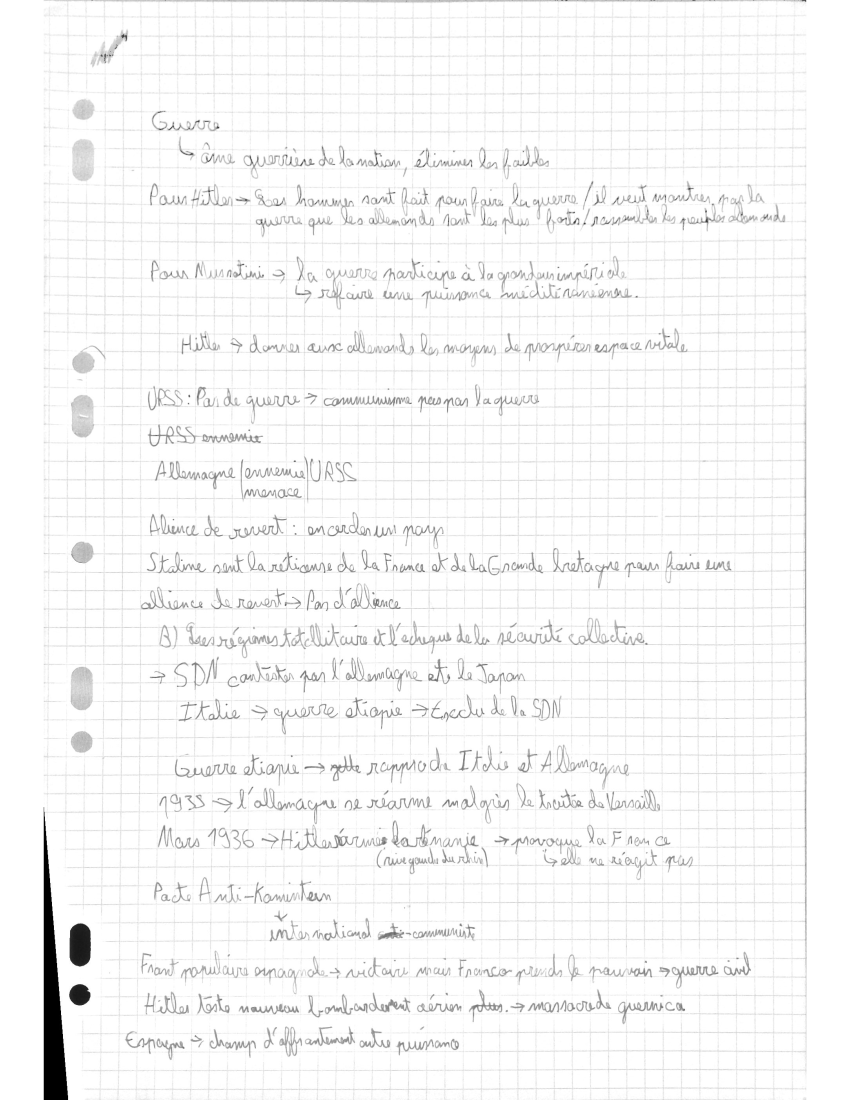 Guerre
↳ âme guerrière de la nation, éliminer les faibles
Pour Hitler → Les hommes sont fait pour faire la guerre / il veut montrer par la
guerre que les allemands sont les plus forts / rassembler les peuples allemands
Pour Mussolini → la guerre participe à la grandeur impériale
↳ refaire une puissance méditéranéenne.
Hitler → donner aux allemands les moyens de prospérer espace vitale
URSS : Pas de guerre → communisme pas par la guerre
URSS ennemie
Allemagne |ennemie| URSS
|menace|
Alience de revert : encercler un pays
Staline sent la réticense de la France et de la Grande bretagne pour faire une
allience de revert → Pas d'allience
B) Les régimes totallitaire et l'echeque de la sécurité collective.
→ SDN contester par l'allemagne et le Japon
Italie → guerre etiopie → Exclu de la SDN
Guerre etiopie → rappro de Italie et Allemagne
1935 → l'allemagne se réarme malgrès le traitée de Versaille
Mars 1936 → Hitler réarme → provoque la France
(rive gauche du rhin) ↳ elle ne réagit pas
Pacte Anti-Komintern
↓
international communiste
Front populaire espagnole → victoire mais Franco prends le pouvoir → guerre civil
Hitler teste nouveau bombardement aérien plus. → massacre de guernica
Espagne → champ d'affrontement autre puissance